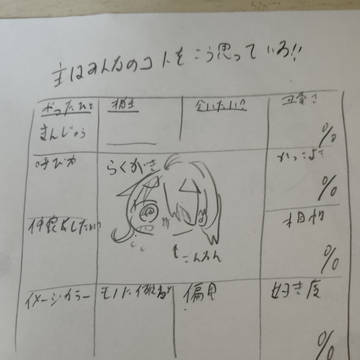 主はみんなのコトをこう思っている!!
やったひと
まんじゅう
相性
会いたい!?
%
呼び方
らくがき
かっこよさ
%
仲良くしたい!?
こんらん
相性
%
イメージカラー
モノに例えると
偏見
好き度
%